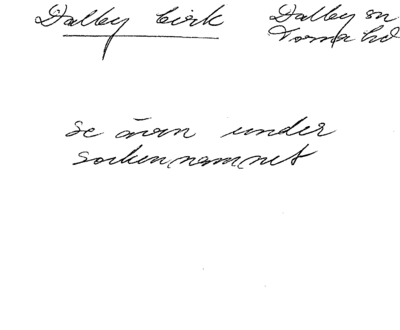 Dalby kirk
Dalby sn
Torna hd
se även under
sockennamnet